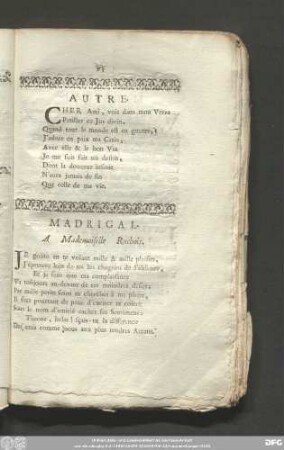 93
AUTRE.
CHER Ami, vois dans mon Verre
Petiller ce Jus divin,
Quand tout le monde est en guerre,
J'adore en paix ma Catin,
Avec elle & le bon Vin.
Je me fais fait un destin,
Dont la douceur infinie
N'aura jamais de fin
Que celle de ma vie.
MADRIGAL.
A Mademoiselle Rochois.
JE goute en te voïant mille & mille plaisirs,
J'éprouve loin de toi les chagrins de
Et je sens que ma complaisance
Va toûjours au devant de tes moindres desirs;
Par mille petits soins je cherche à te plaire,
Il faut pourtant de peur d'exciter ta colere
Sous le nom d'amitié cacher ses Sentimens:
Thevot, helas! sçais-tu la difference
Des amis comme nous aux plus tendres Amans.